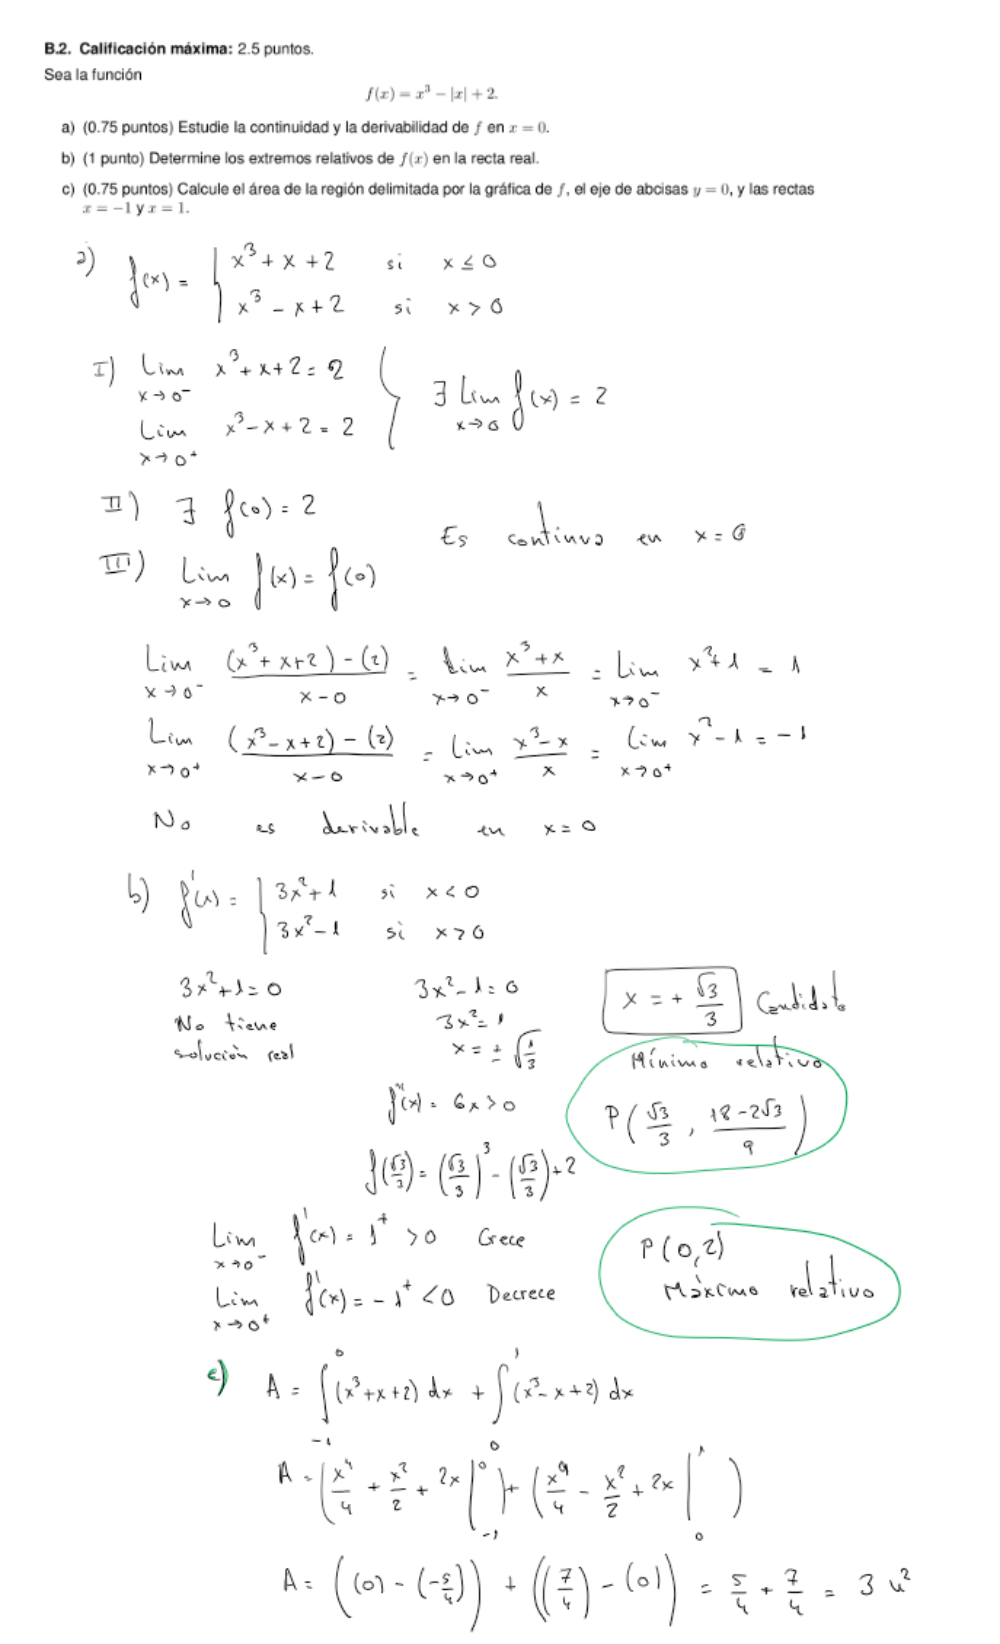 B.2. Calificación máxima: 2.5 puntos.
Sea la función
f(x) = x³ − |x| + 2.
a) (0.75 puntos) Estudie la continuidad y la derivabilidad de f en x = 0.
b) (1 punto) Determine los extremos relativos de f(x) en la recta real.
c) (0.75 puntos) Calcule el área de la región delimitada por la gráfica de f, el eje de abcisas y = 0, y las rectas
x = −1 y x = 1.
a) f(x) = { x³ + x + 2 si x ≤ 0
x³ − x + 2 si x > 0
I) Lim x→0⁻ x³ + x + 2 = 2
Lim x→0⁺ x³ − x + 2 = 2 } ∃ Lim x→0 f(x) = 2
II) ∃ f(0) = 2
Es continua en x = 0
III) Lim x→0 f(x) = f(0)
Lim x→0⁻ ((x³ + x + 2) − (2))/(x − 0) = Lim x→0⁻ (x³ + x)/x = Lim x→0⁻ x² + 1 = 1
Lim x→0⁺ ((x³ − x + 2) − (2))/(x − 0) = Lim x→0⁺ (x³ − x)/x = Lim x→0⁺ x² − 1 = −1
No es derivable en x = 0
b) f'(x) = { 3x² + 1 si x < 0
3x² − 1 si x > 0
3x² + 1 = 0 3x² − 1 = 0 x = + √3/3 Candidato
No tiene 3x² = 1
solución real x = ± √(1/3)
Mínimo relativo
f''(x) = 6x > 0
P(√3/3, (18 − 2√3)/9)
f(√3/3) = (√3/3)³ − (√3/3) + 2
Lim x→0⁻ f'(x) = 1⁺ > 0 Crece
P(0, 2)
Lim x→0⁺ f'(x) = −1⁺ < 0 Decrece
Máximo relativo
c) A = ∫₋₁⁰ (x³ + x + 2) dx + ∫₀¹ (x³ − x + 2) dx
A = (x⁴/4 + x²/2 + 2x |₋₁⁰) + (x⁴/4 − x²/2 + 2x |₀¹)
A = ((0) − (−5/4)) + ((7/4) − (0)) = 5/4 + 7/4 = 3 u²